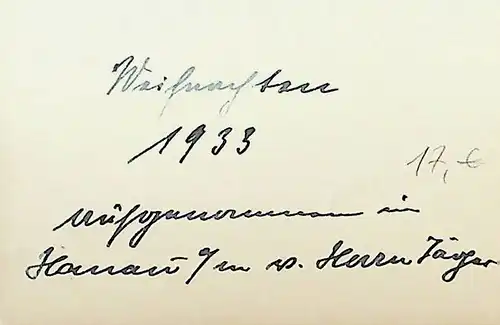 Weihnachten
1933
17,- €
aufgenommen in
Hanau a/m v. Herrn Jäger